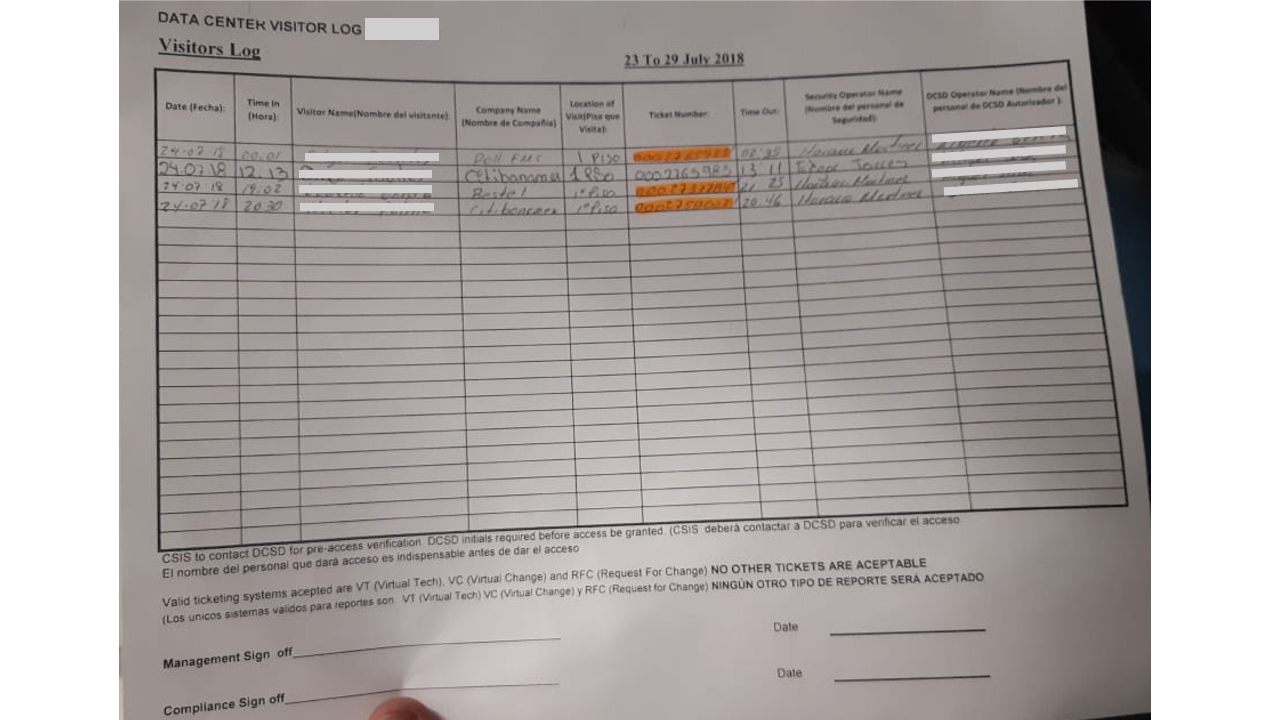 DATA CENTER VISITOR LOG
Visitors Log
23 To 29 July 2018
Date (Fecha): Time In (Hora): Visitor Name(Nombre del visitante): Company Name (Nombre de Compañia) Location of Visit(Piso que Visita): Ticket Number: Time Out: Security Operator Name (Nombre del personal de Seguridad): DCSD Operator Name (Nombre del personal de DCSD Autorizador ):
24-07-18 00:01 Dell EMC 1 Piso
24.07.18 12.13 1 Piso 0002765983 13 11
24-07 18 19:02 Bestel 1º Piso 21 25
24-07 18 20:30 1º Piso 20:46
CSIS to contact DCSD for pre-access verification. DCSD initials required before access be granted. (CSIS deberá contactar a DCSD para verificar el acceso
El nombre del personal que dará acceso es indispensable antes de dar el acceso
Valid ticketing systems acepted are VT (Virtual Tech), VC (Virtual Change) and RFC (Request For Change) NO OTHER TICKETS ARE ACCEPTABLE
(Los unicos sistemas validos para reportes son VT (Virtual Tech) VC (Virtual Change) y RFC (Request for Change) NINGÚN OTRO TIPO DE REPORTE SERÁ ACEPTADO
Management Sign off Date
Compliance Sign off Date